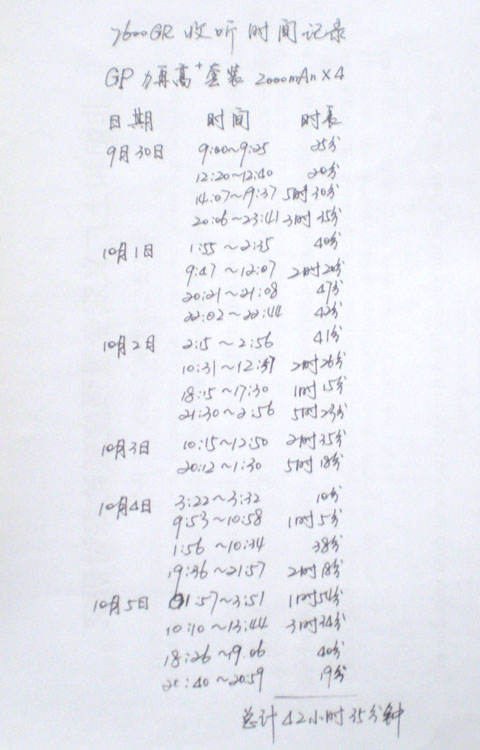 7600GR 收听时间记录
GP 力再高+套装 2000mAh×4
日期 时间 时长
9月30日 9:00~9:25 25分
12:20~12:40 20分
14:07~19:37 5时30分
20:06~23:41 3时35分
10月1日 1:55~2:35 40分
9:47~12:07 2时20分
20:21~21:08 47分
22:02~22:44 42分
10月2日 2:15~2:56 41分
10:31~12:57 2时26分
18:15~17:30 1时15分
21:30~2:56 5时23分
10月3日 10:15~12:50 2时35分
20:12~1:30 5时18分
10月4日 3:22~3:32 10分
9:53~10:58 1时5分
1:56~10:34 38分
19:36~21:57 2时18分
10月5日 01:57~3:51 1时54分
10:10~13:44 3时34分
18:26~19.06 40分
20:40~20:59 19分
总计42小时35分钟